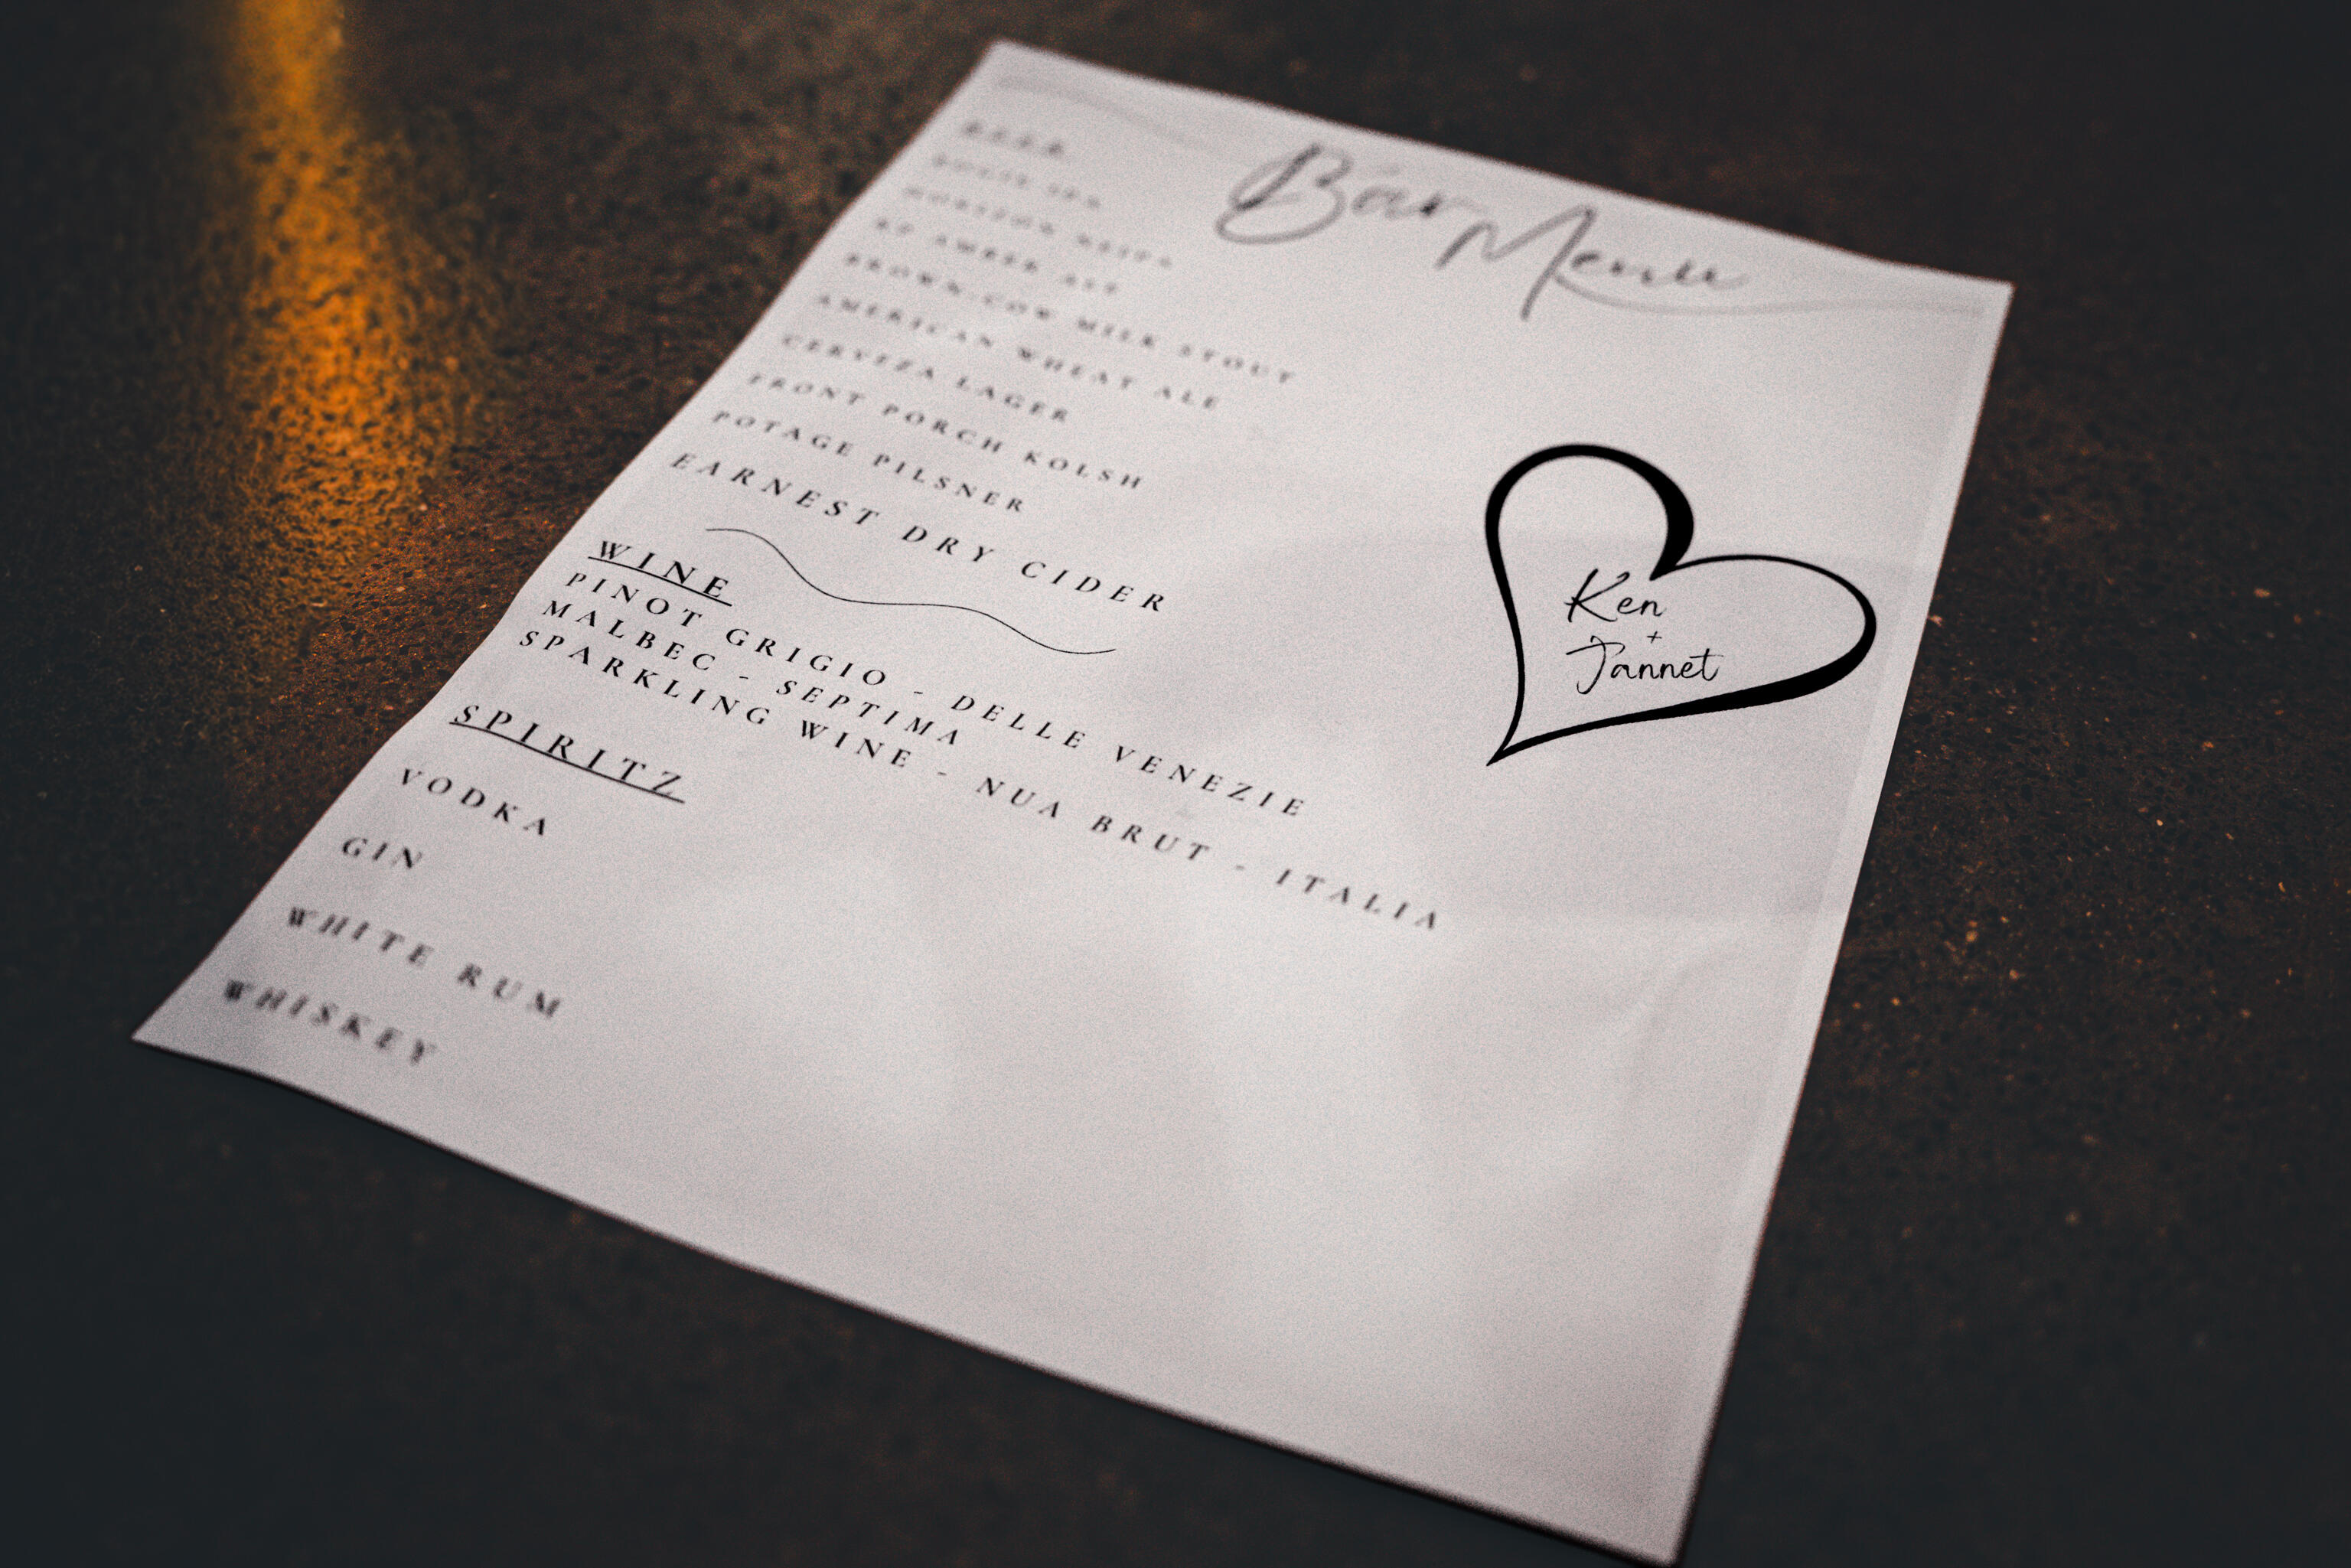 Bar Menu
BEER
HORIZON NEIPA
AMBER ALE
BROWN COW MILK STOUT
AMERICAN WHEAT ALE
CERVEZA LAGER
FRONT PORCH KOLSH
POTAGE PILSNER
EARNEST DRY CIDER
WINE
PINOT GRIGIO - DELLE VENEZIE
MALBEC - SEPTIMA
SPARKLING WINE - NUA BRUT - ITALIA
SPIRITZ
VODKA
GIN
WHITE RUM
WHISKEY
Ken
+
Jannet